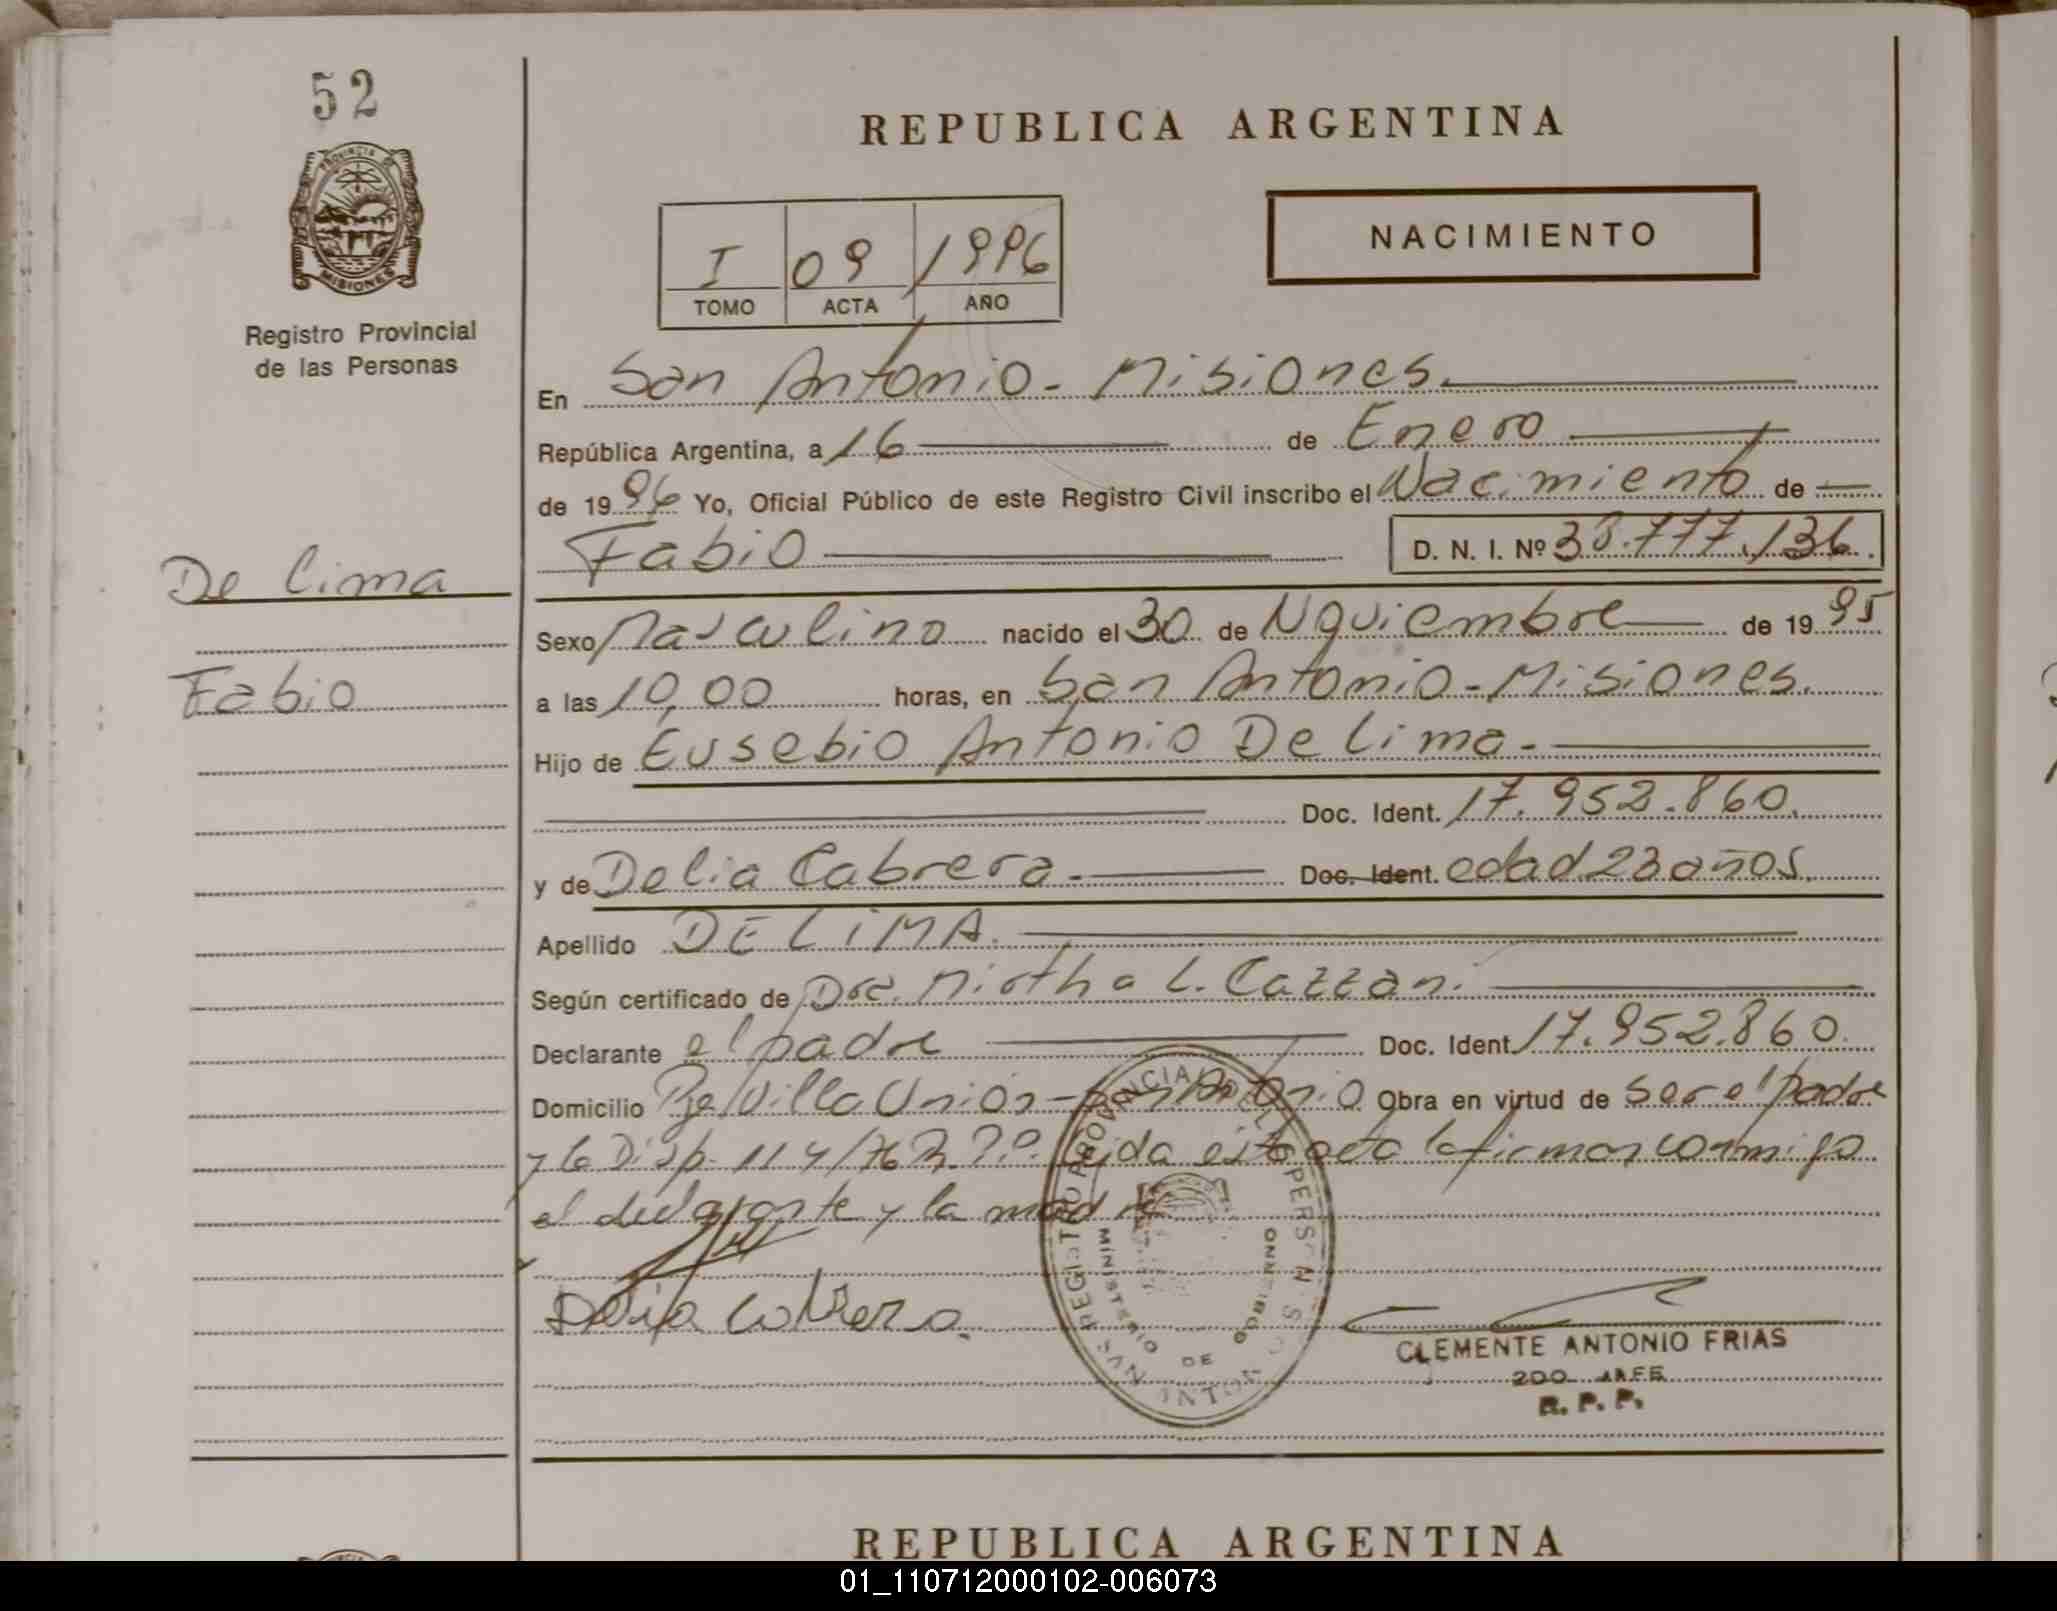 52
REPUBLICA ARGENTINA
PROVINCIA DE
MISIONES
NACIMIENTO
I 09 1996
TOMO ACTA AÑO
Registro Provincial
de las Personas
En San Antonio - Misiones.
República Argentina, a 16 de Enero
de 1996 Yo, Oficial Público de este Registro Civil inscribo el Nacimiento de
Fabio D. N. I. Nº 38.777.136.
De Lima
Fabio
Sexo Masculino nacido el 30 de Noviembre de 1995
a las 10,00 horas, en San Antonio - Misiones.
Hijo de Eusebio Antonio De Lima -
Doc. Ident. 17.952.860.
y de Delia Cabrera - Doc. Ident. edad 23 años.
Apellido DE LIMA.
Según certificado de Dra. Mirtha L. Cazzani
Declarante el padre Doc. Ident. 17.952.860.
Domicilio Pje Villa Unión - San Antonio Obra en virtud de ser el padre
y la Disp. 114/76 leida esta acta la firman conmigo
el declarante y la madre
Delia Cabrera.
REGISTRO PROVINCIAL DE LAS PERSONAS
MINISTERIO DE GOBIERNO
SAN ANTONIO
CLEMENTE ANTONIO FRIAS
2DO. JEFE
R. P. P.
REPUBLICA ARGENTINA
01_110712000102-006073